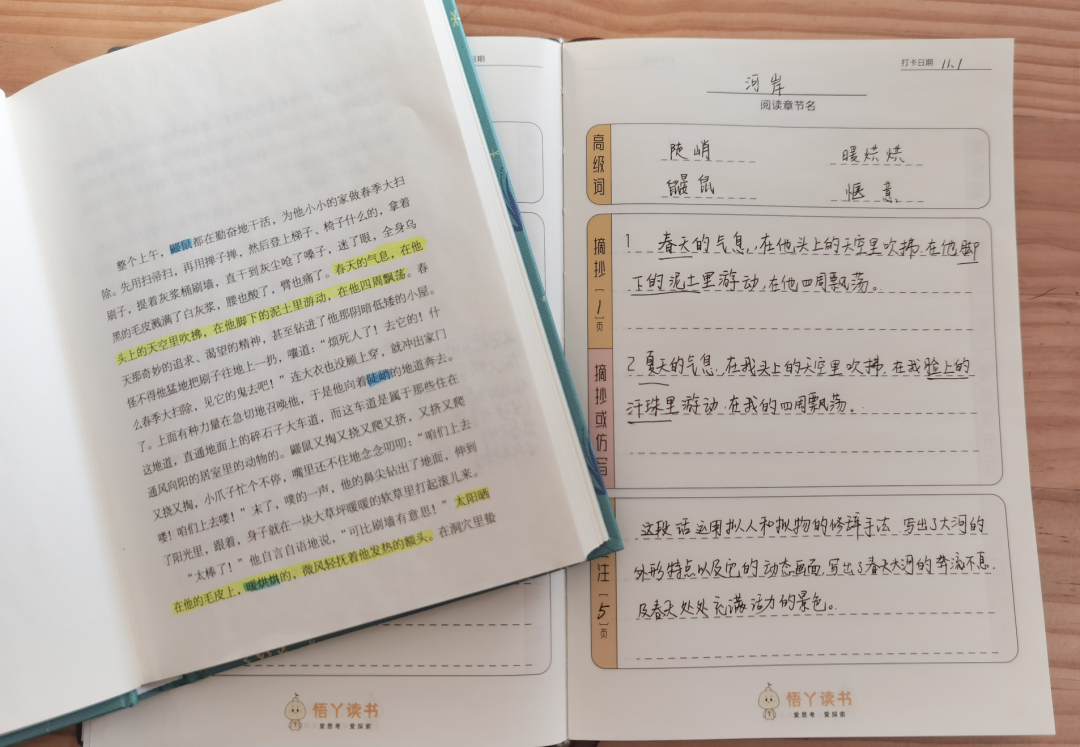 整个上午，鼹鼠都在勤奋地干活，为他小小的家做春季大扫
除。先用扫帚扫，再用掸子掸，然后登上梯子、椅子什么的，拿着
刷子，提着灰浆桶刷墙，直干到灰尘呛了嗓子，迷了眼，全身乌
黑的毛皮溅满了白灰浆，腰也酸了，臂也痛了。春天的气息，在他
头上的天空里吹拂，在他脚下的泥土里游动，在他四周飘荡。春
天那奇妙的追求、渴望的精神，甚至钻进了他那阴暗低矮的小屋。
怪不得他猛地把刷子往地上一扔，嚷道：“烦死人了！去它的！什
么春季大扫除，见它的鬼去吧！”连大衣也没顾上穿，就冲出家门
了。上面有种力量在急切地召唤他，于是他向着陡峭的地道奔去。
这地道，直通地面上的碎石子大车道，而这车道是属于那些住在
通风向阳的居室里的动物的。鼹鼠又掏又挠又爬又挤，又挤又爬
又挠又掏，小爪子忙个不停，嘴里还不住地念念叨叨：“咱们上去
喽！咱们上去喽！”末了，噗的一声，他的鼻尖钻出了地面，伸到
了阳光里，跟着，身子就在一块大草坪暖暖的软草里打起滚儿来。
“太棒了！”他自言自语地说，“可比刷墙有意思！”太阳晒
在他的毛皮上，暖烘烘的，微风轻抚着他发热的额头。在洞穴里蛰
期
悟丫读书
爱思考 爱探索
打卡日期 11.1
河岸
阅读章节名
高级词
陡峭 暖烘烘
鼹鼠 惬意
摘抄（1）页
1 春天的气息，在他头上的天空里吹拂，在他脚
下的泥土里游动，在他四周飘荡。
摘抄或仿写
2. 夏天的气息，在我头上的天空里吹拂，在我脸上的
汗珠里游动，在我的四周飘荡。
注（5）页
这段话运用拟人和拟物的修辞手法，写出了大河的
外形特点以及它的动态画面，写出了春天大河的奔流不息，
及春天处处充满活力的景色。
悟丫读书
爱思考 爱探索